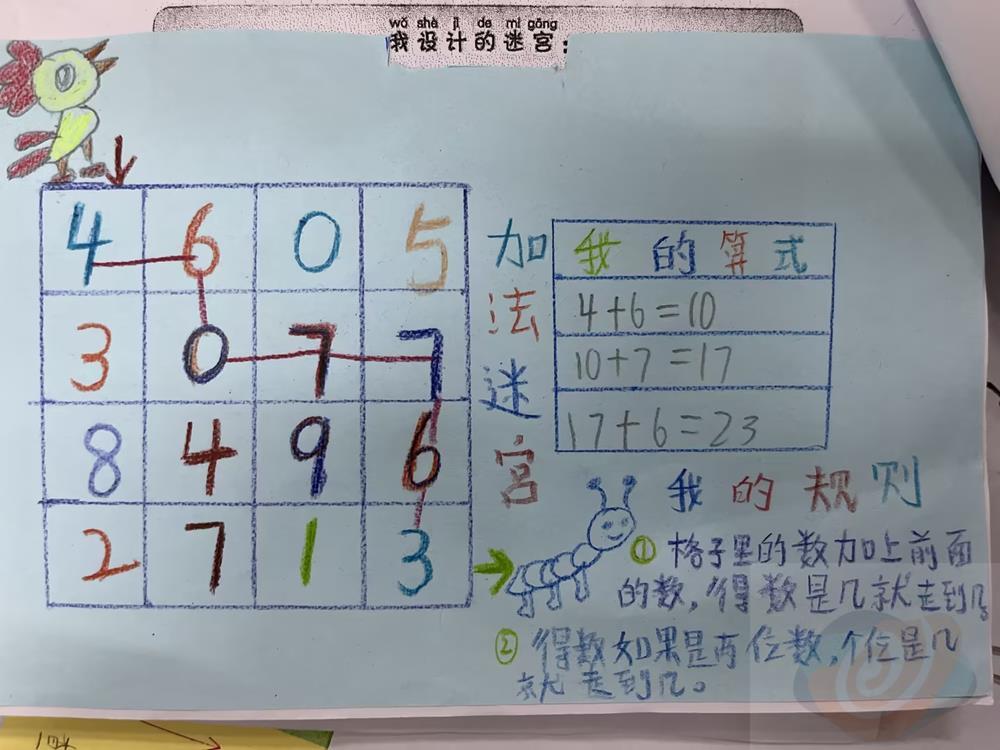 wǒ shè jì de mí gōng
我设计的迷宫：
4 6 0 5
3 0 7 7
8 4 9 6
2 7 1 3
加法迷宫
我的算式
4+6=10
10+7=17
17+6=23
我的规则
① 格子里的数加上前面
的数，得数是几就走到几。
② 得数如果是两位数，个位是几
就走到几。